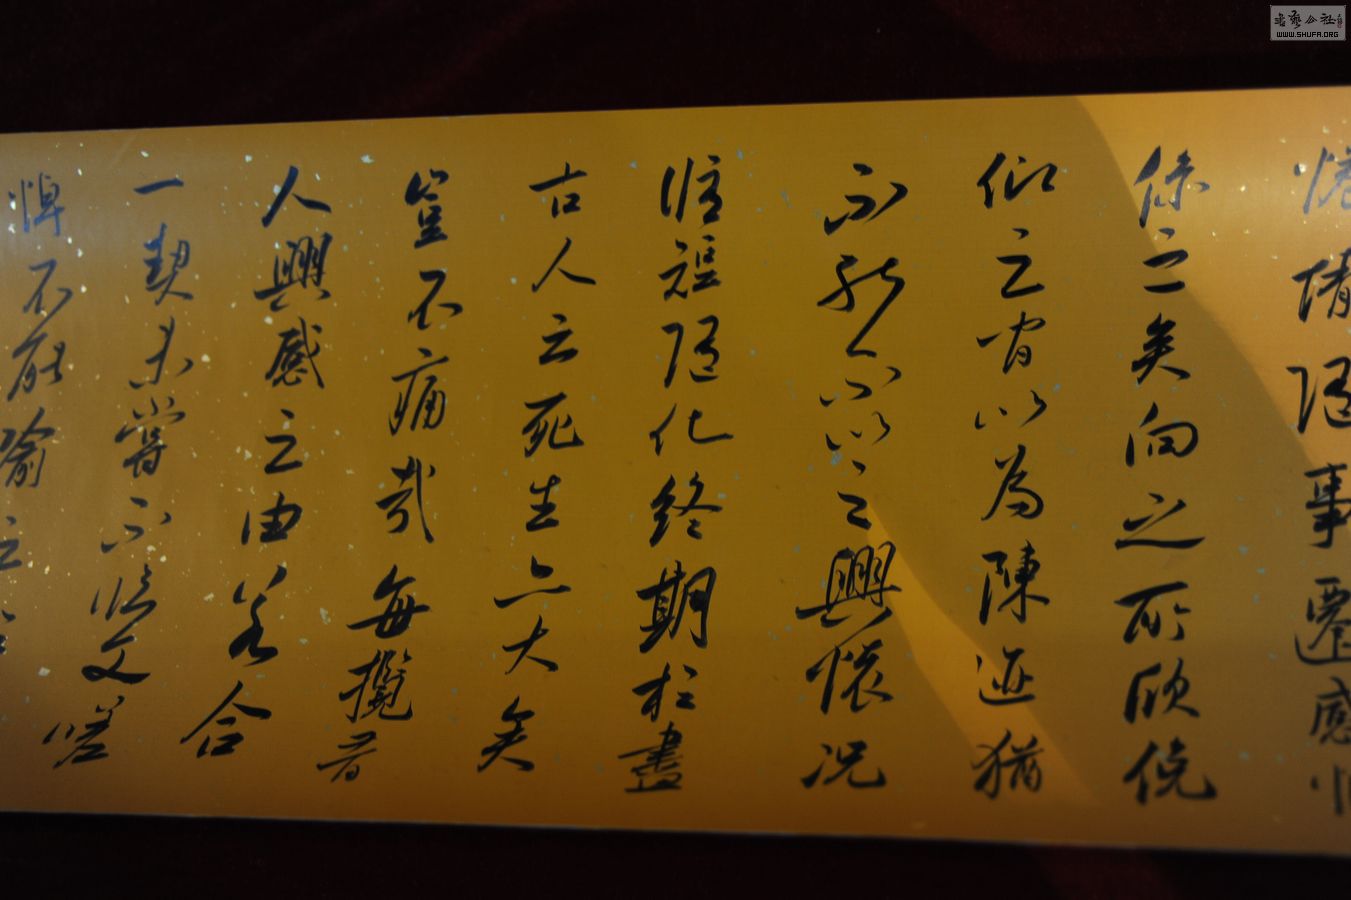 惓情随事遷感慨
係之矣向之所欣俛
仰之間以為陳迹猶
不能不以之興懷况
脩短随化終期於盡
古人云死生亦大矣
豈不痛哉每攬昔
人興感之由若合
一契未嘗不臨文嗟
悼不能喻之
WWW.SHUFA.ORG